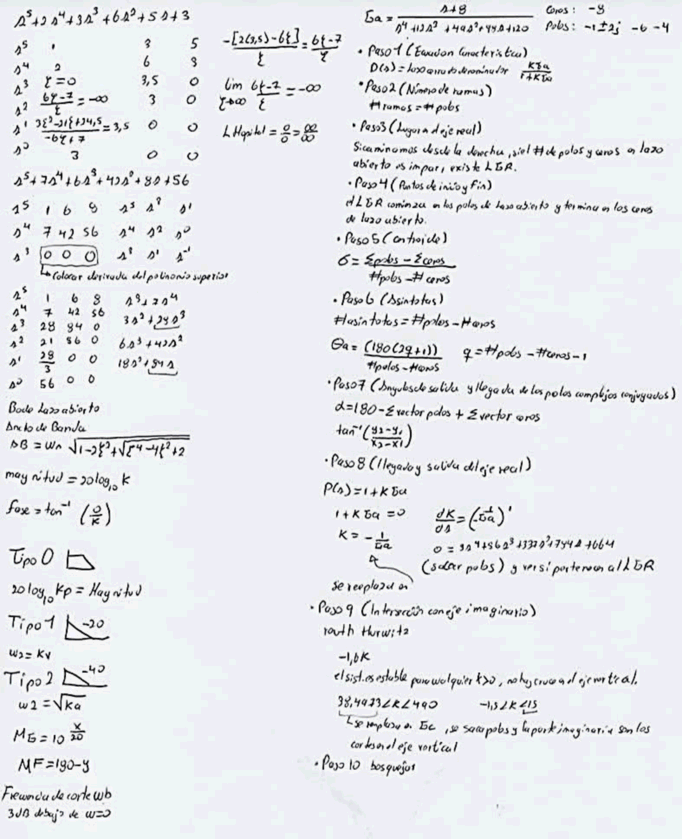 s⁵+2s⁴+3s³+6s²+5s+3
s⁵ 1 3 5
s⁴ 2 6 3
s³ ξ=0 3,5 0
s² (6ξ-7)/ξ = -∞ 3 0
s¹ = 3,5 0 0
s⁰ 3 0 0
-[2(3,5)-6ξ]/ξ = (6ξ-7)/ξ
lim (6ξ-7)/ξ = -∞
L Hopital = 0/0 = ∞/∞
s⁵+7s⁴+6s³+42s²+8s+56
s⁵ 1 6 8 s⁵ s³ s¹
s⁴ 7 42 56 s⁴ s² s⁰
s³ 0 0 0
Colocar derivada del polinomio superior
s⁵ 1 6 8
s⁴ 7 42 56
s³ 28 84 0
s² 21 56 0
s¹ 28/3 0 0
s⁰ 56 0 0
Bode Lazo abierto
Ancho de Banda
magnitud = 20log₁₀ K
fase = tan⁻¹ (0/K)
Tipo 0
20 log₁₀ Kp = Magnitud
Tipo 1 -20
w₂= Kv
Tipo 2 -40
w2 = √Ka
MG = 10^(x/20)
MF=180-y
Frecuencia de corte wb
3dB debajo de w=0
Ga = (s+8)/(s⁴+12s³+49s²+94s+120)
Ceros: -8
Polos: -1±2j -6 -4
• Paso 1 (Ecuacion Caracteristica)
D(s) = Lazo cerrado denominador
• Paso 2 (Número de ramas)
# ramas = # polos
• Paso 3 (Lugar en el eje real)
Si caminamos desde la derecha, si el # de polos y ceros en lazo
abierto es impar, existe LGR.
• Paso 4 (Puntos de inicio y Fin)
el LGR comienza en los polos de lazo abierto y termina en los ceros
de lazo abierto.
• Paso 5 (Centroide)
σ = (Σpolos - Σceros)/(#polos - #ceros)
• Paso 6 (Asintotas)
#asintotas = #polos - #ceros
θa = (180(2q+1))/(#polos - #ceros) q = #polos - #ceros - 1
• Paso 7 (Angulos de salida y llegada de los polos complejos conjugados)
α=180-Σvector polos + Σ vector ceros
tan⁻¹((y₂-y₁)/(x₂-x₁))
• Paso 8 (llegada y salida del eje real)
P(s) = 1+K Ga
1+K Ga = 0 dK/ds = (-1/Ga)'
K = -1/Ga
(sacar polos) y ver si pertenecen al LGR
se reemplaza en
• Paso 9 (Intersección con eje imaginario)
routh Hurwitz
el sist. es estable para cualquier k>0, no hay cruce en el eje vertical.
se reemplaza en Ec, se saca polos y la parte imaginaria son los
cortes en el eje vertical
• Paso 10 bosquejar